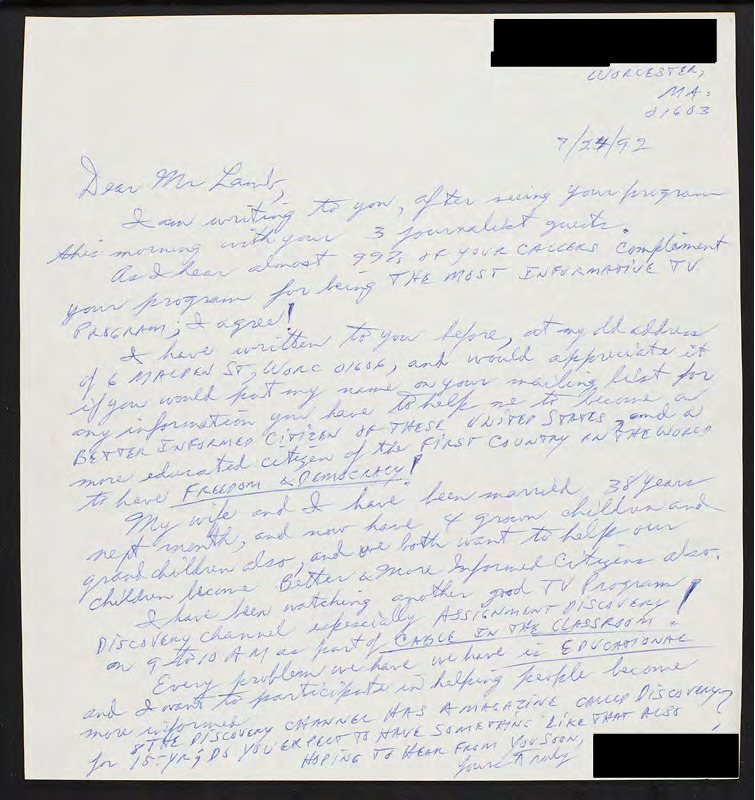 WORCESTER,
MA.
01603
9/24/92
Dear Mr Lamb,
I am writing to you, after seeing your program
this morning with your 3 journalist guests.
As I hear almost 99% OF YOUR CALLERS compliment
your program for being THE MOST INFORMATIVE TV
PROGRAM, I agree!
I have written to you before, at my old address
of 6 MALDEN ST, WORC 01606, and would appreciate it
if you would put my name on your mailing list for
any information you have to help me to become a
BETTER INFORMED CITIZEN OF THESE UNITED STATES, and a
more educated citizen of the FIRST COUNTRY IN THE WORLD
to have FREEDOM & DEMOCRACY!
My wife and I have been married 38 years
next month, and now have 4 grown children and
grandchildren also, and we both want to help our
children become Better & More Informed Citizens also.
I have been watching another good TV Program,
DISCOVERY channel especially ASSIGNMENT DISCOVERY
on 9 to 10 AM as part of CABLE IN THE CLASSROOM!
Every problem we have we have is EDUCATIONAL
and I want to participate in helping people become
more informed.
& THE DISCOVERY CHANNEL HAS A MAGAZINE CALLED DISCOVERY
for 15-YR; DO YOU EXPECT TO HAVE SOMETHING LIKE THAT ALSO?
HOPING TO HEAR FROM YOU SOON,
Yours truly